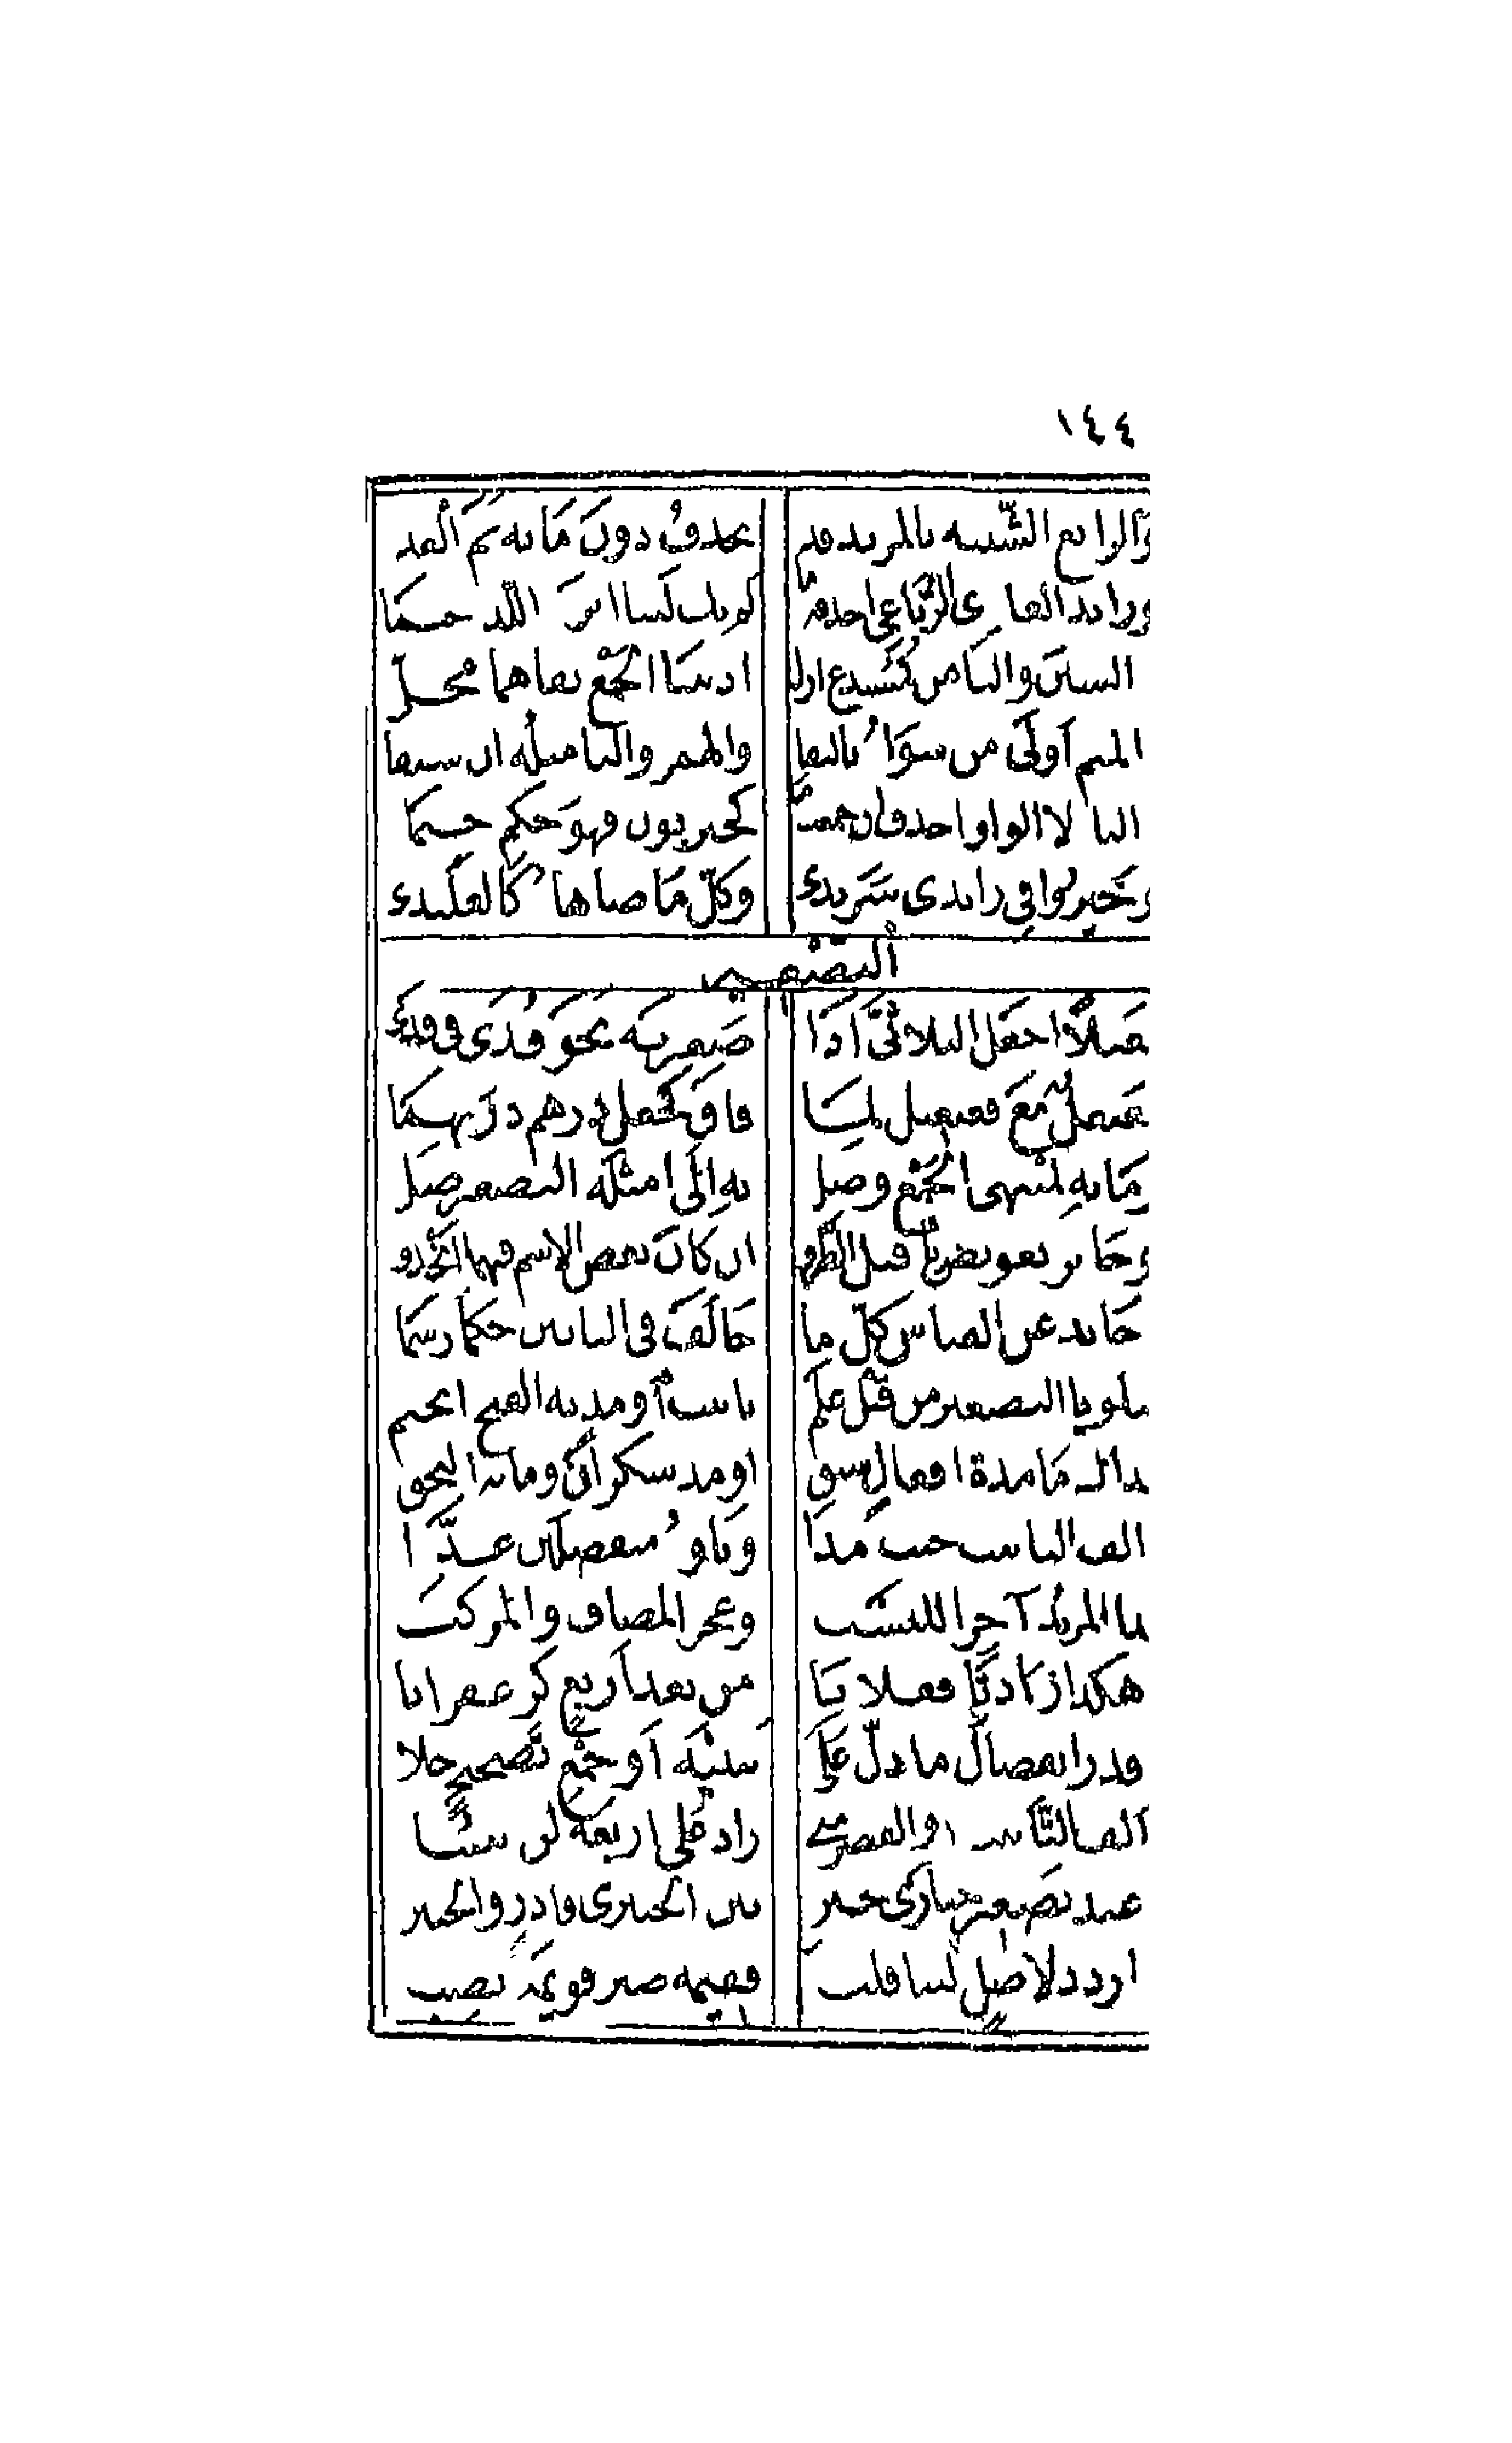 ١٤٤
والرابع الشبيه بالمزيد قد يحذف دون ما به تم العدد
وزائد العادى الرباعي احذفه ما لم يك لينا اثره اللذ ختما
السين والتا من كمستدع ازل اذ ببنا الجمع بقاهما مخل
الميم أولى من سواه بالبقا والهمز واليا مثله ان سبقا
اليا لا الواو احذف ان جمعت ما كحيزبون فهو حكم حتما
وخيروا في زائدى سرندى وكل ما ضاهاه كالعلندى
التصغير
فعيلا اجعل الثلاثى اذا صغرته نحو قذى في قذى
فعيعل مع فعيعيل لما فاق كجعل درهم دريهما
وما به لمنتهى الجمع وصل به إلى امثلة التصغير صل
وجائز تعويض يا قبل الطرف ان كان بعض الاسم فيهما انحذف
حائد عن القياس كل ما خالف في البابين حكما رسما
لتلو يا التصغير من قبل علم تانيث أو مدته الفتح انحتم
كذاك ما مدة افعال سبق او مد سكران وما به التحق
الف التانيث حيث مدا وتاؤه منفصلين عدا
كذا المزيد آخرا للنسب وعجز المضاف والمركب
هكذا زيادتا فعلانا من بعد أربع كزعفرانا
وقدر انفصال ما دل على تثنية أو جمع تصحيح جلا
الف التأنيث ذو القصر متى زاد على اربعة لن يثبتا
عند تصغير حبارى خير بين الحبيرى فادر والحبير
اردد لاصل لينا قلب فقيمة صير قويمة تصب